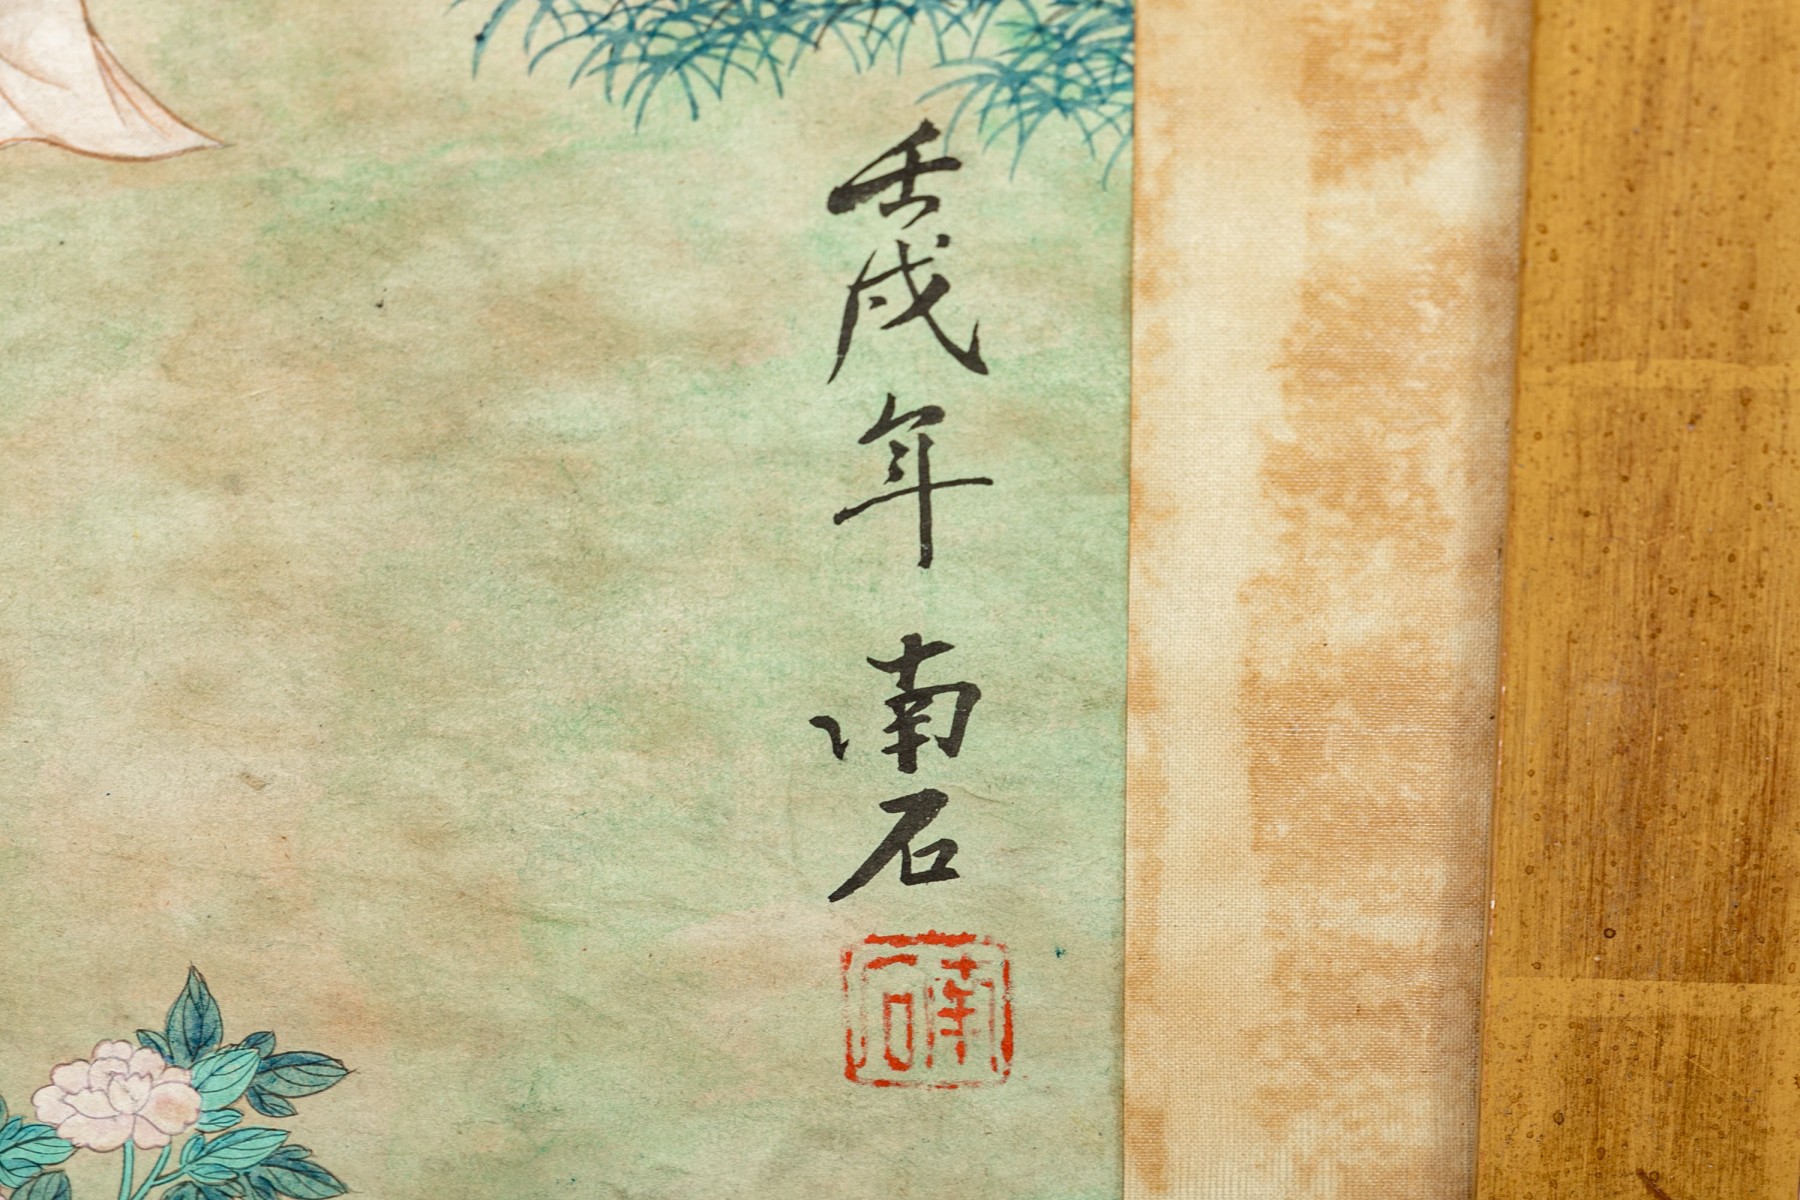 壬戌年 南石
南石